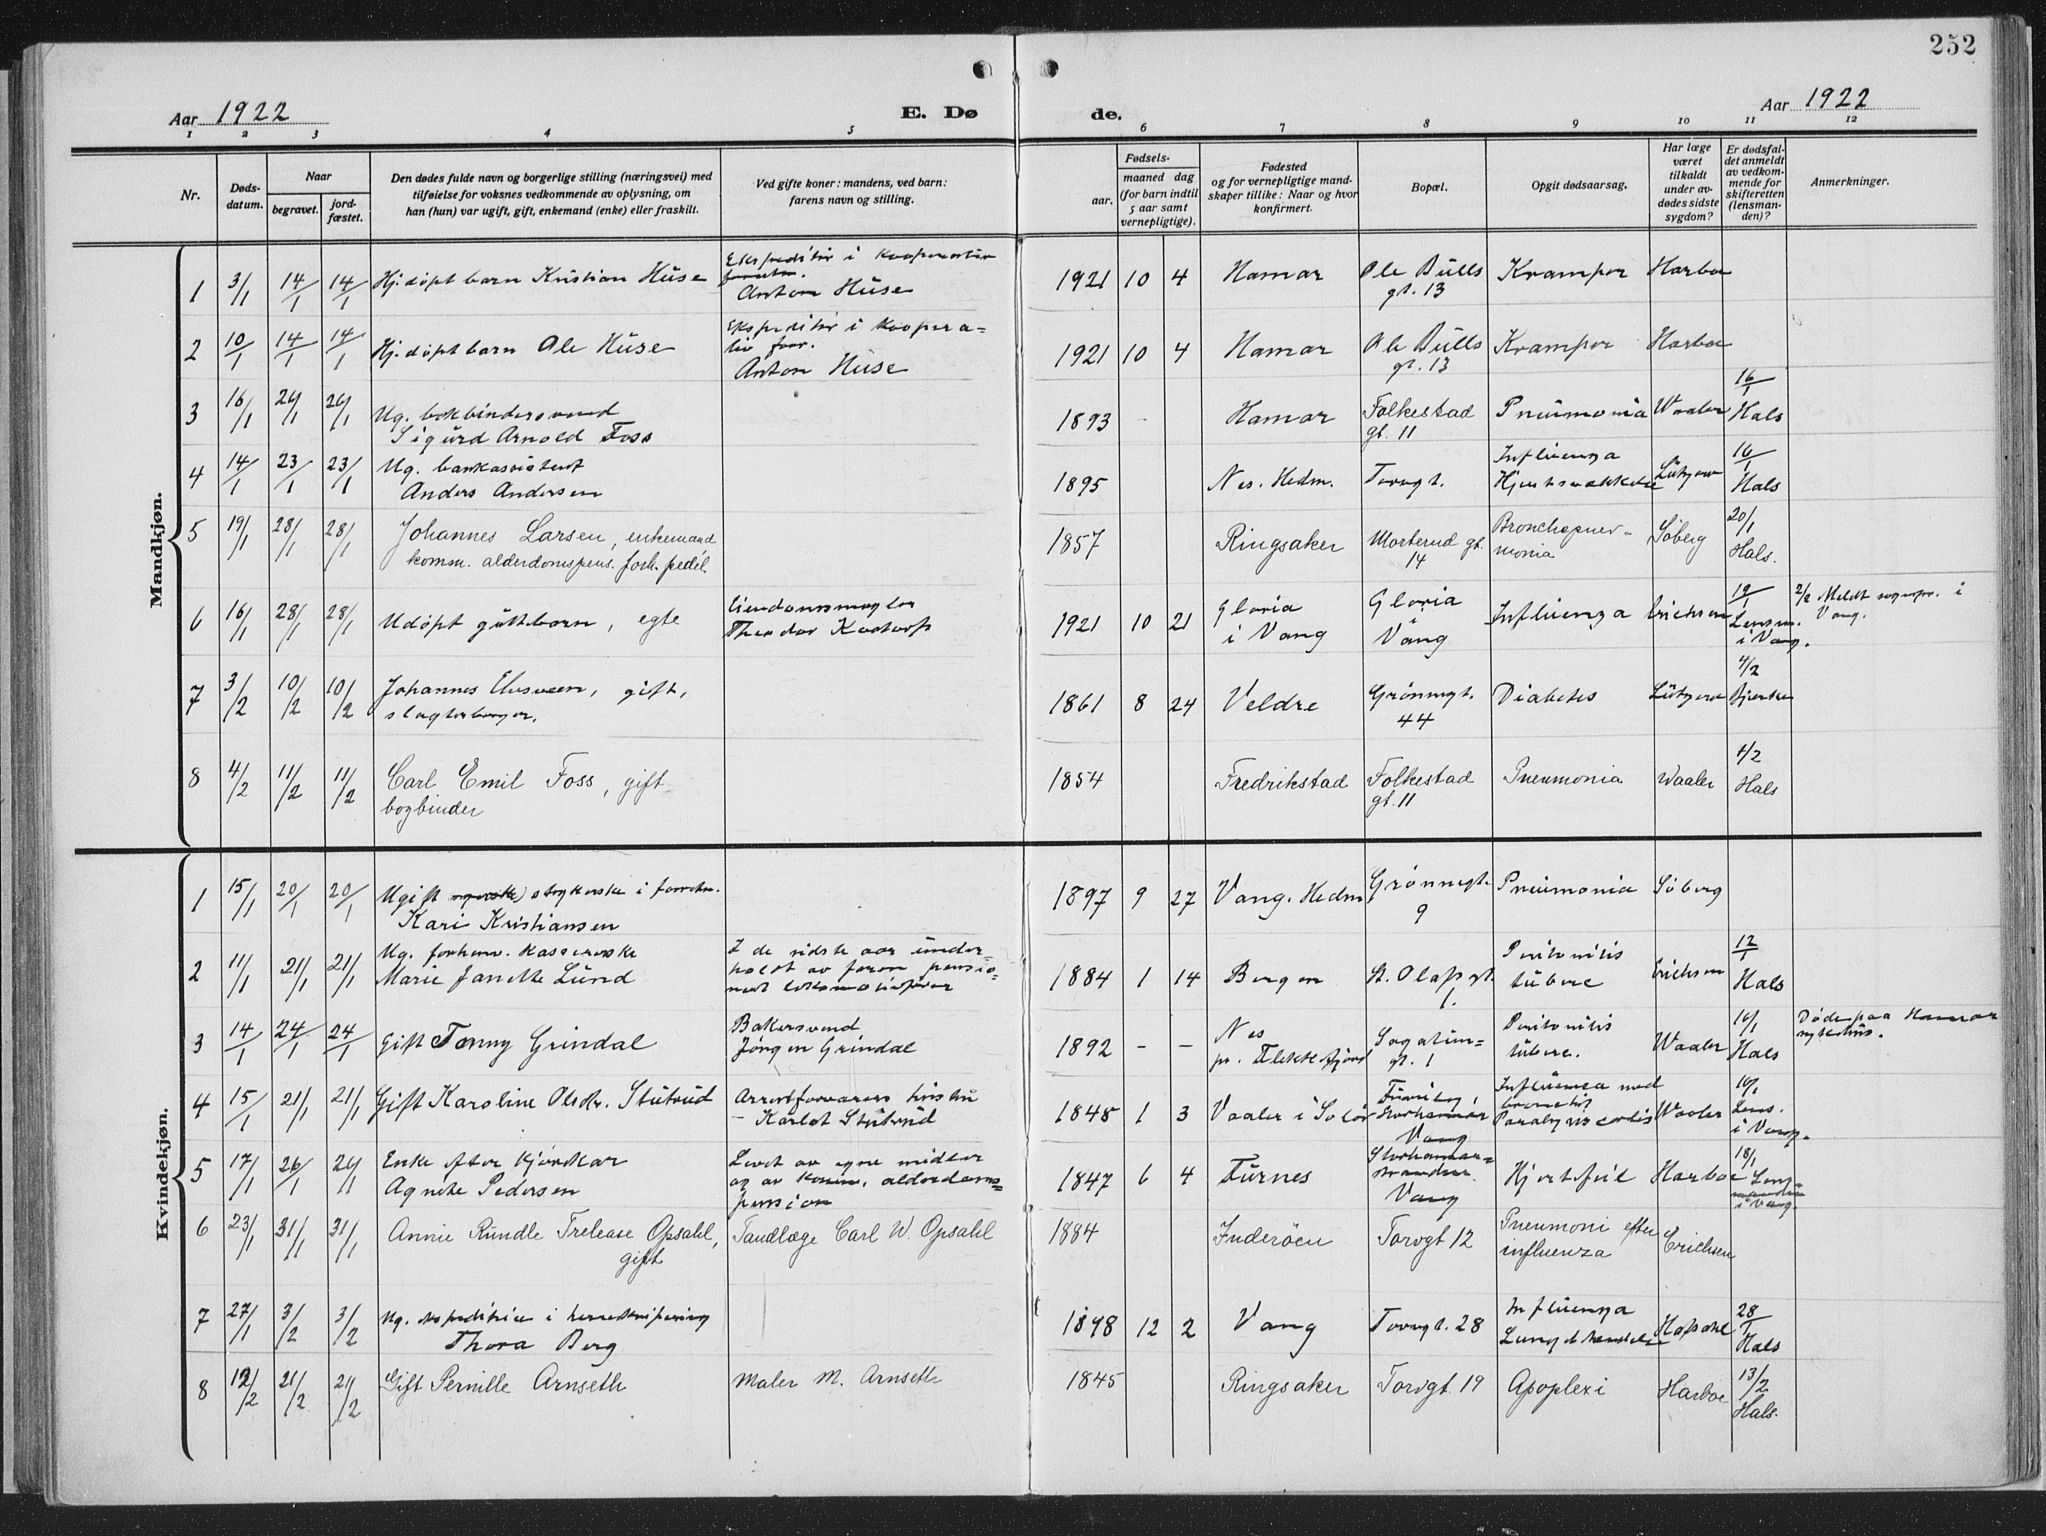 252
Aar 1922
E. Dø de.
Aar 1922
1 2 3 4 5 6 7 8 9 10 11 12
Nr.
Døds-
datum.
Naar
begravet.
jord-
fæstet.
Den dødes fulde navn og borgerlige stilling (næringsvei) med
tilføielse for voksnes vedkommende av oplysning, om
han (hun) var ugift, gift, enkemand (enke) eller fraskilt.
Ved gifte koner: mandens, ved barn:
farens navn og stilling.
Fødsels-
aar.
maaned dag
(for barn indtil
5 aar samt
vernepligtige).
Fødested
og for vernepligtige mand-
skaper tillike: Naar og hvor
konfirmert.
Bopæl.
Opgit dødsaarsag.
Har læge
været
tilkaldt
under av-
dødes sidste
sygdom?
Er dødsfal-
det anmeldt
av vedkom-
mende for
skifteretten
(lensman-
den)?
Anmerkninger.
Mandkjøn.
1 3/1 14/1 14/1 Hj.døpt barn Kristian Huse
Ekspeditør i kooperativ
Anton Huse
1921 10 4 Hamar Ole Bulls
gt. 13
Krampor Harboe
2 10/1 14/1 14/1 Hj.døpt barn Ole Huse
Ekspeditør i koopera-
tiv foor.
Anton Huse
1921 10 4 Hamar Ole Bulls
gt. 13
Krampor Harboe
3 16/1 24/1 24/1 Ug. bokbindersvend
Sigurd Arnold Foss
1893 - Hamar Folkestad
gt. 11
Pneumonia Waaler 16/1
Hals
4 14/1 23/1 23/1 Ug. bankassistent
Anders Andersen
1895 Nes. Hedm. Torvgt.
Influenza
Hjertesvækkelse Lützow 16/1
Hals
5 19/1 28/1 28/1 Johannes Larsen, enkemand
komm. alderdomspens. forh. pedel.
1857 Ringsaker Morterud gt.
14
Bronchopneu-
monia
Søberg 20/1
Hals.
6 16/1 28/1 28/1 Udøpt guttbarn, egte
Eiendomsmegler
Theodor
1921 10 21 Gloria
i Vang
Gloria
i
Vang
Influenza Erichsen 19/1
Lensm.
i Vang.
2/2 Meldt sognepr. i
Vang.
7 3/2 10/2 10/2 Johannes Elvsveen, gift,
slagterborger.
1861 8 24 Veldre Grønnegt.
44
Diabetes Lützow 4/2
Bjerke
8 4/2 11/2 11/2 Carl Emil Foss, gift
bogbinder
1854 Fredrikstad Folkestad
gt. 11
Pneumonia Waaler 4/2
Hals
Kvindekjøn.
1 15/1 20/1 20/1 Ugift strykerske i forretn.
Kari Kristiansen
1897 9 27 Vang. Hedm Grønnegt.
9
Pneumonia Søberg
2 11/1 21/1 21/1 Ug. forhenv. kassererske
Marie Janette Lund
I de sidste aar under-
holdt av faren pensio-
nert lokomotivfører
1884 1 14 Bergen St. Olafsgt.
1.
Peritonitis
tuberc
Erichsen 12/1
Hals
3 14/1 24/1 24/1 Gift Tonny Grindal
Bakersvend
Jørgen Grindal
1892 - - Nes
pr. Flekkefjord
Sagatun-
gt. 1
Peritonitis
tuberc.
Waaler 16/1
Hals
Døde paa Hamar
sykehus.
4 15/1 21/1 21/1 Gift Karoline Olsdtr. Stutrud
Arrestforvarers hustru
- Karlot Stutrud
1845 1 3 Vaaler i Solør
Storhamar
Vang
Influenza med
Paralysis cordis Waaler 16/1
Lens.
i Vang.
5 17/1 26/1 24/1 Enke efter kjørekar
Agnete Pedersen
Levet av egne midler
og av komm. alderdoms-
pension
1847 6 4 Furnes Storhamar-
stranden
Vang
Hjertefeil Harboe 18/1
Lens-
manden
i Vang.
6 23/1 31/1 31/1 Annie Rundle Trelease Opsahl,
gift
Tandlæge Carl W. Opsahl
1884 Inderøen Torvgt 12
Pneumoni efter
influenza
Erichsen
7 27/1 3/2 3/2 Ug. ekspeditrice i herreekvipering
Thora Berg
1898 12 2 Vang Torvgt. 28
Influenza
Lungebetændelse Hofsdal 28/1
Hals
8 12/2 21/2 21/2 Gift Pernille Arnseth
Maler M. Arnseth
1845 Ringsaker Torvgt. 19 Apoplexi Harboe 13/2
Hals.